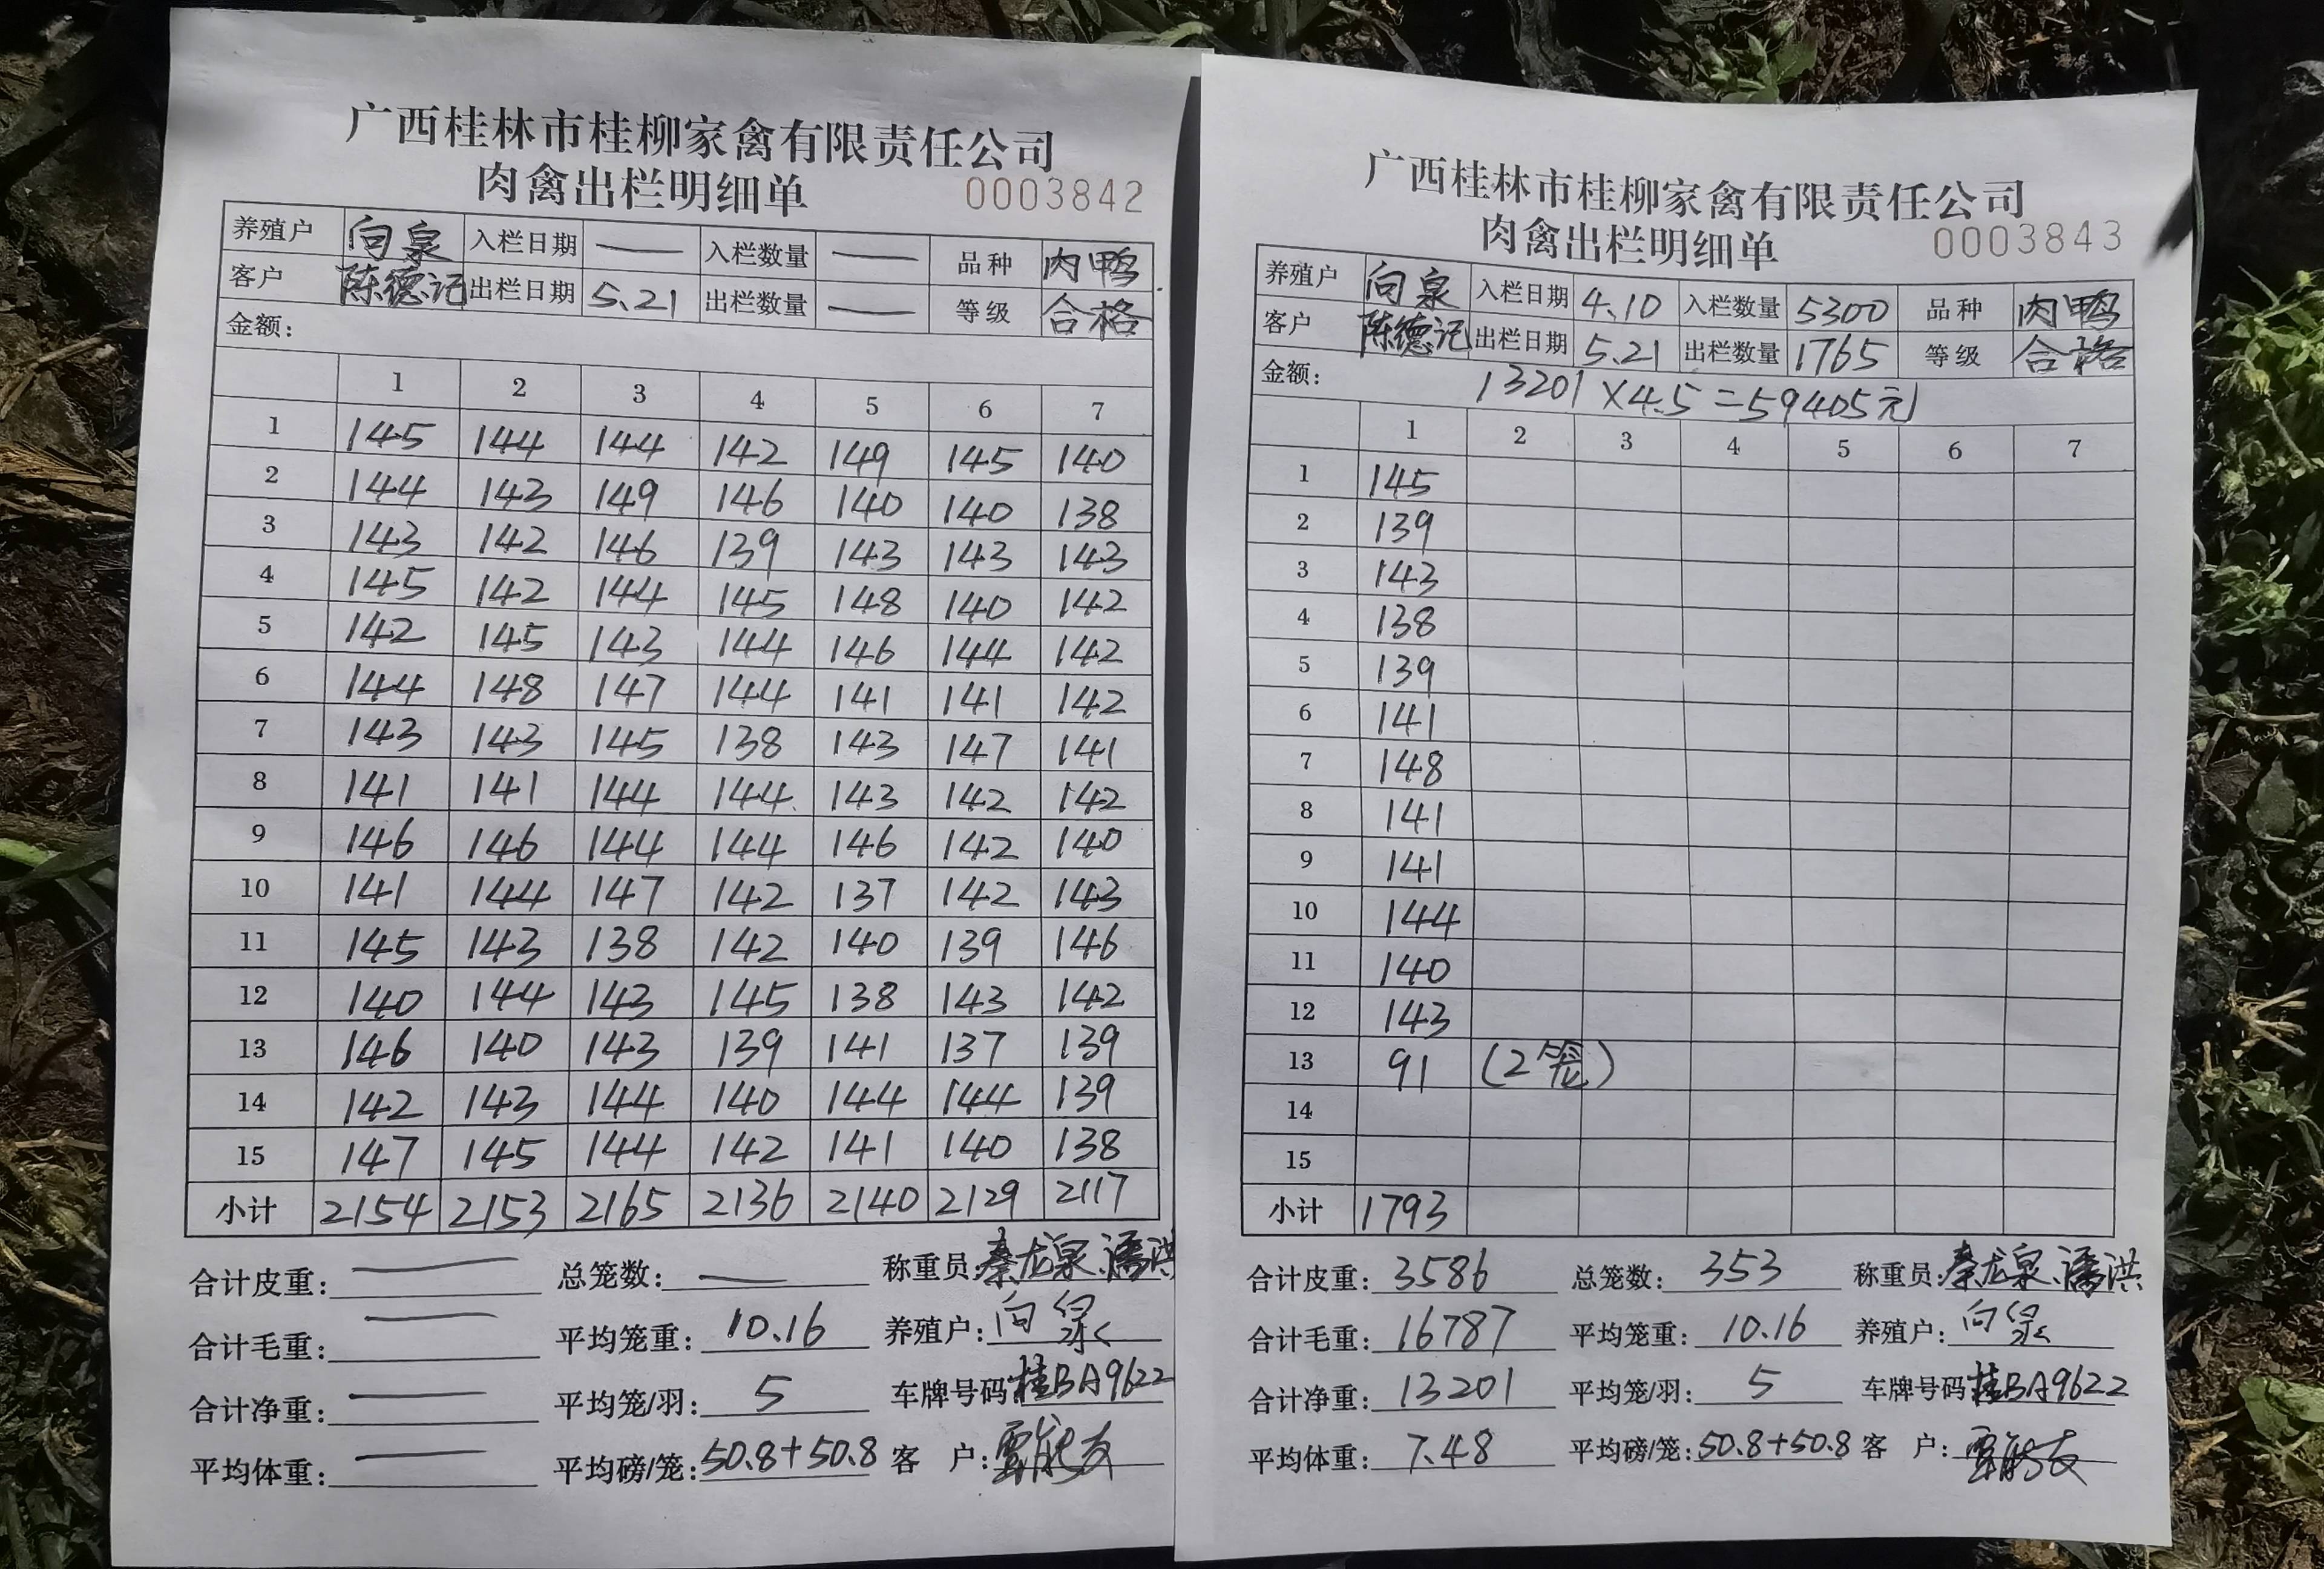 广西桂林市桂柳家禽有限责任公司
肉禽出栏明细单 0003842
养殖户 向泉 入栏日期 — 入栏数量 — 品种 肉鸭
客户 陈德记 出栏日期 5.21 出栏数量 — 等级 合格
金额:
1 2 3 4 5 6 7
1 145 144 144 142 149 145 140
2 144 143 149 146 140 140 138
3 143 142 146 139 143 143 143
4 145 142 144 145 148 140 142
5 142 145 143 144 146 144 142
6 144 148 147 144 141 141 142
7 143 143 145 138 143 147 141
8 141 141 144 144 143 142 142
9 146 146 144 144 146 142 140
10 141 144 147 142 137 142 143
11 145 143 138 142 140 139 146
12 140 144 143 145 138 143 142
13 146 140 143 139 141 137 139
14 142 143 144 140 144 144 139
15 147 145 144 142 141 140 138
小计 2154 2153 2165 2136 2140 2129 2117
合计皮重: — 总笼数: — 称重员: 秦龙泉、潘洪
合计毛重: — 平均笼重: 10.16 养殖户: 向泉
合计净重: — 平均笼/羽: 5 车牌号码 桂BA9622
平均体重: — 平均磅/笼: 50.8+50.8 客 户:
广西桂林市桂柳家禽有限责任公司
肉禽出栏明细单 0003843
养殖户 向泉 入栏日期 4.10 入栏数量 5300 品种 肉鸭
客户 陈德记 出栏日期 5.21 出栏数量 1765 等级 合格
金额: 13201×4.5=59405元
1 2 3 4 5 6 7
1 145
2 139
3 143
4 138
5 139
6 141
7 148
8 141
9 141
10 144
11 140
12 143
13 91 (2笼)
14
15
小计 1793
合计皮重: 3586 总笼数: 353 称重员: 秦龙泉、潘洪
合计毛重: 16787 平均笼重: 10.16 养殖户: 向泉
合计净重: 13201 平均笼/羽: 5 车牌号码 桂BA9622
平均体重: 7.48 平均磅/笼: 50.8+50.8 客 户: